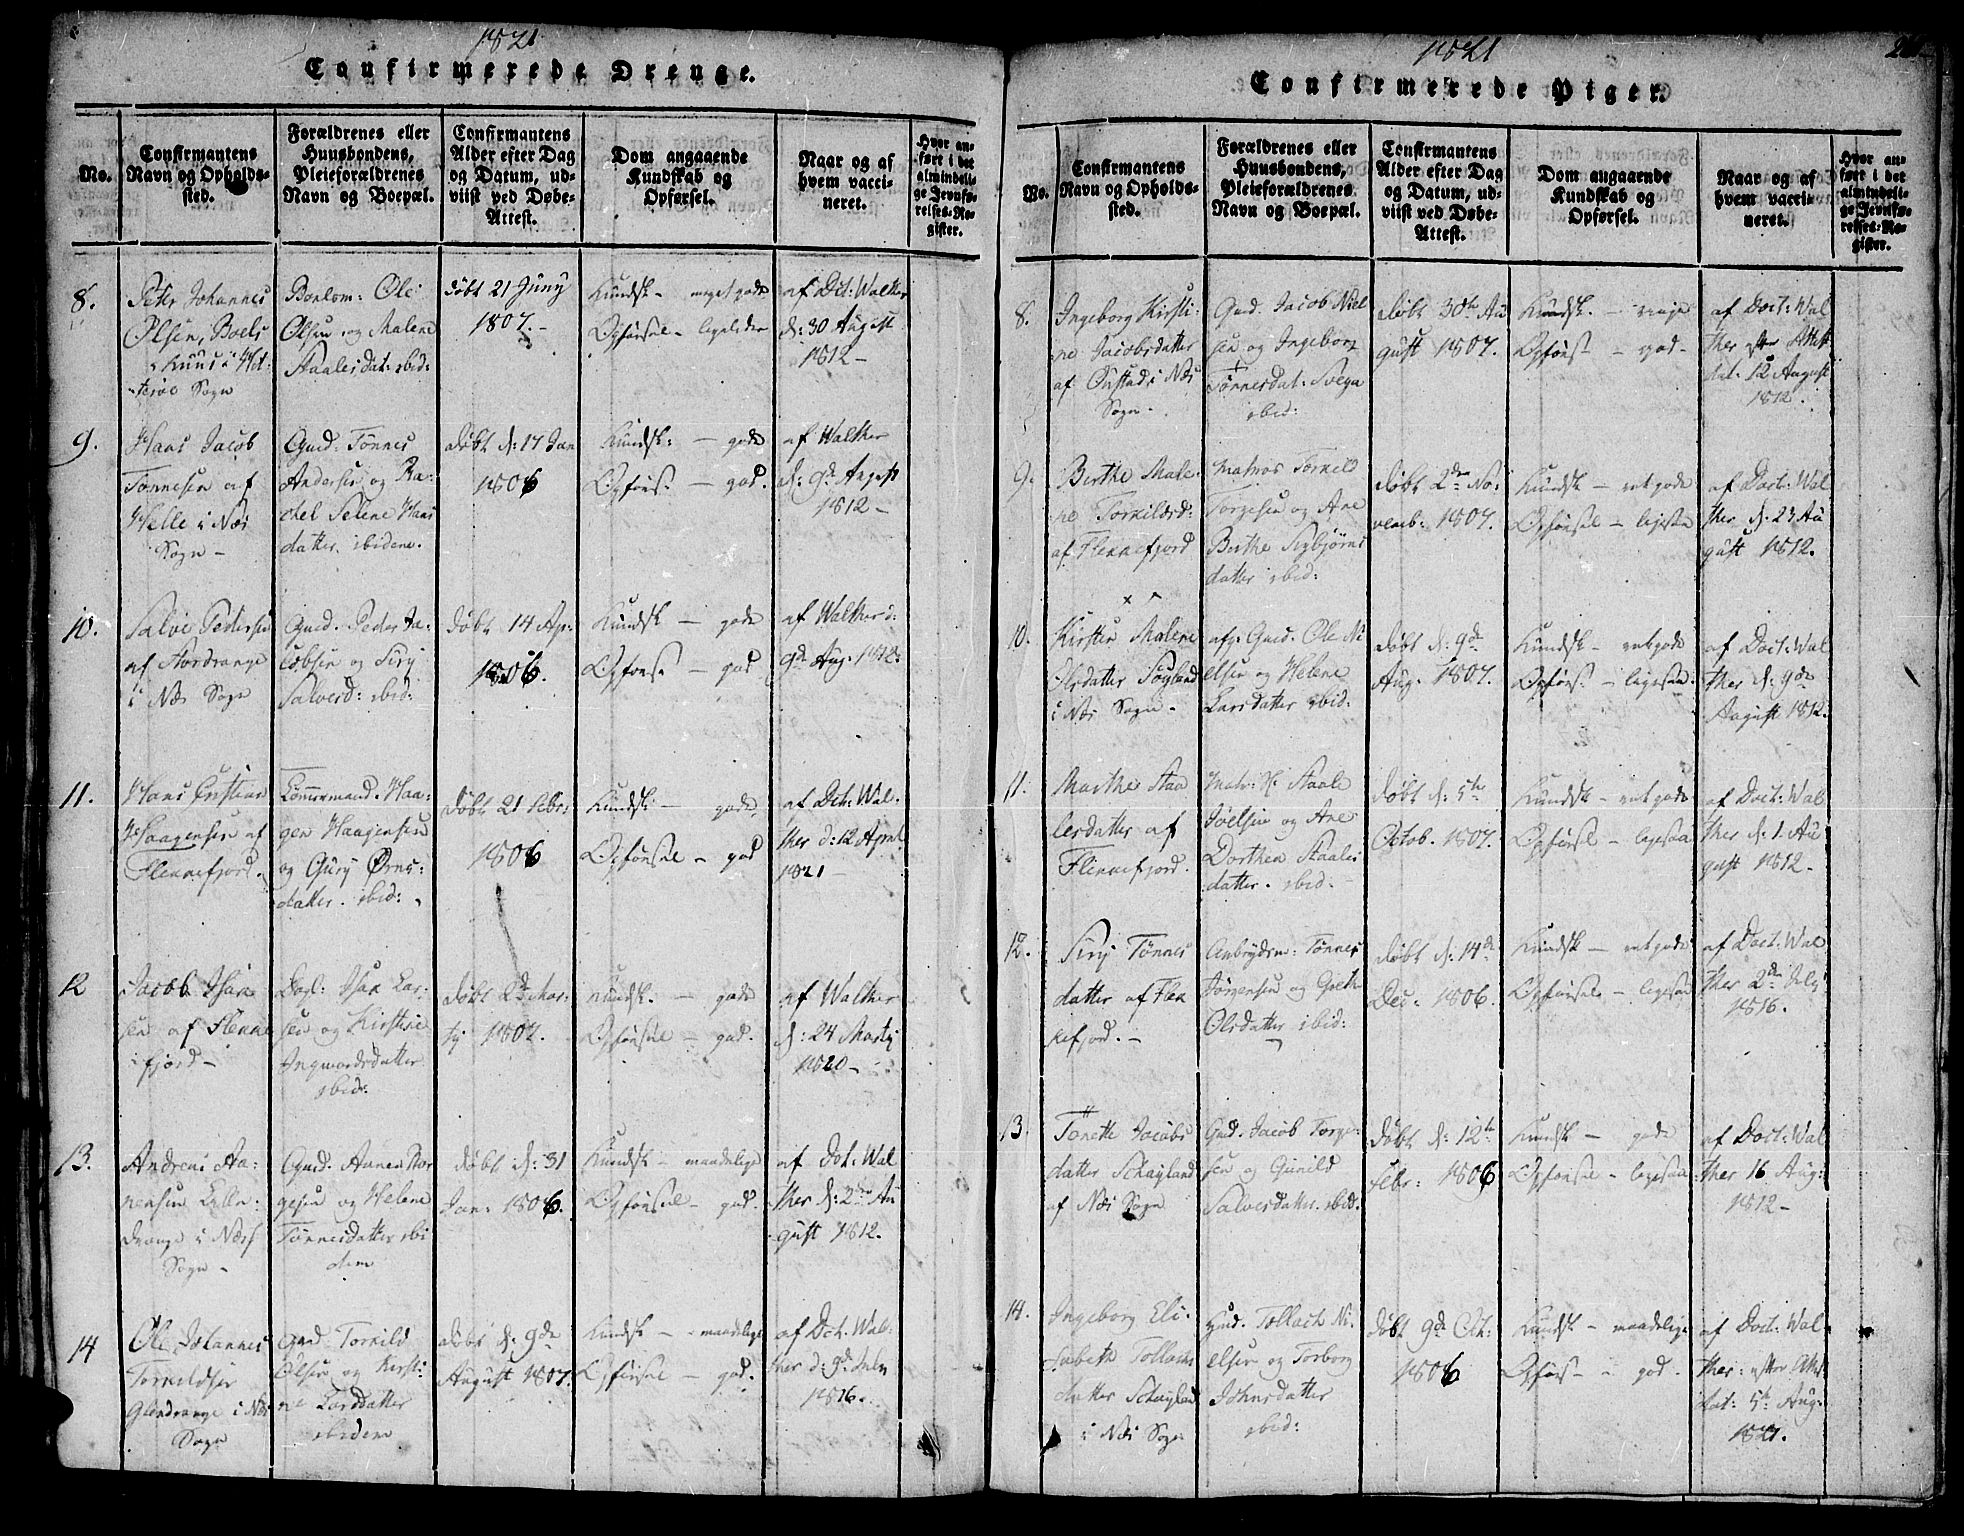 1821
Confirmerede Drenge.
No.
Confirmantens
Navn og Opholds-
sted.
Forældrenes eller
Huusbondens,
Pleieforældrenes
Navn og Boepæl.
Confirmantens
Alder efter Dag
og Datum, ud-
viist ved Døbe-
Attest.
Dom angaaende
Kundskab og
Opførsel.
Naar og af
hvem vacci-
neret.
Hvor an-
ført i det
almindeli-
ge Jevnfø-
relses-Re-
gister.
8.
Peter Johannes
Olsen, Boels
Sogn
Ole
Olsen og Malene
Staalesdat: ibid:
døbt 21 Juny
1807.-
Kundsk- meget gode
Opførsel- ligeledes
af Doct: Walther
d: 30 August
1812-
9.
Hans Jacob
Tønnesen af
Helle i Næs
Sogn-
Gmd: Tønnes
Andersen og Ra-
chel Selene Hans
datter ibidem.
døbt d: 17 Jan
1806
Kundsk: - gode
Opførs: - god.
af Walther
d: 9de August
1812-
10.
Salve Pedersen
af
i Næs Sogn
Gmd. Peder Ja-
cobsen og Siry
Salvesd: ibid:
døbt 14 Ap:
1806.
Kundsk - gode
Opførs - god
af Walther d:
9de Aug: 1812.
11.
Hans Cristian
Haagensen af
Flennefjord.
Tømmermand. Haa-
gen Haagensen
og Gury Ørns-
datter. ibid:
døbt 21 Febr:
1806
Kundsk: - gode
Opførsel - god
af Doct: Wal-
ther d: 12 April
1821-
12
Jacob Isak
sen af Flenne
fjord-
Isak Lar-
sen og Kirstine
Ingwordsdatter
ibid:
døbt 2de Mar-
ty 1807.
Kundsk. - gode
Opførsel - god.
af Walther
d: 24 Marty
1820-
13.
Andreas Aa-
nensen
drange i Næs
Sogn-
Gmd. Aanen Tor
gesen og Helene
Tønnesdatter ibi
dem
døbt d: 31
Jan: 1806.
Kundsk - maadelige
Opførsel - god.
af Doct: Wal
ther d: 2den Au
gust 1812.
14
Ole Johannes
Torkildsen
Glendrange i Næs
Sogn
Gmd Torkild
Olsen og Kirsti-
ne Larsdatter
ibidem
døbt d: 9de
August 1807.
Kundsk - maadelige
Opførsel - god.
af Doct. Wal-
ther d: 9de July
1816.
1821
Confirmerede Piger.
No.
Confirmantens
Navn og Opholds-
sted.
Forældrenes eller
Huusbondens,
Pleieforældrenes
Navn og Boepæl.
Confirmantens
Alder efter Dag
og Datum, ud-
viist ved Døbe-
Attest.
Dom angaaende
Kundskab og
Opførsel.
Naar og af
hvem vacci-
neret.
Hvor an-
ført i det
almindeli-
ge Jevnfø-
relses-Re-
gister.
8.
Ingeborg Kirsti-
ne Jacobsdatter
af Onstad i Næs
Sogn-
Gmd. Jacob Niel
sen og Ingeborg
Tønnesdat: Svega
ibid:
døbt 30te Au
gust 1807.
Kundsk. - ringe
Opførs - god-
af Doct: Wal
ther efter Attest
dat. 12 August
1812.
9.
Berthe Male-
ne Torkildsd:
af Flennefjord
Matros Torkild
Torgesen og Ane
Berthe Sigbjørns
datter ibid:
døbt 2den No-
vemb: 1807.
Kundsk - ret gode
Opførsel - ligesaa
af Doct: Wal
ther d. 23 Au
gust 1812.
10.
Kirsten Malene
Olsdatter Søyland
i Næs Sogn-
afg. Gmd. Ole Ni
elsen og Helene
Larsdatter ibid:
døbt d: 9de
Aug: 1807.
Kundsk - ret gode
Opførs - ligesaa
af Doct: Wal
ther d: 9de
August 1812.
11.
Marthe Staa
lesdatter af
Flennefjord.
Staale
Joelsen og Ane
Dorthea Staales
datter. ibid:
døbt d: 5te
Octob. 1807.
Kundsk - ret gode
Opførsel - ligesaa
af Doct: Wal
ther d: 1. Au
gust 1812-
12.
Siry Tønnes
datter af Flek
kefjord.-
Tønnes
Jørgensen og
Olsdatter ibid:
døbt d: 14de
Dec. 1806.
Kundsk - ret gode
Opførsel - ligesaa
af Doct: Wal
ther 2de July
1816.
13.
Tonette Jacobs
datter Schayland
af Næs Sogn
Gmd. Jacob Torge-
sen og Gunild
Salvesdatter ibid.
døbt d: 12te
Febr: 1806
Kundsk - gode
Opførsel - ligesaa
af Doct: Wal
ther 16 Aug:
1812-
14.
Ingeborg Eli-
sabeth Tollachs
datter Schayland
i Næs Sogn
Gmd. Tollach Ni-
elsen og Torborg
Johnsdatter
ibid:
døbt 9de Oct:
1806
Kundsk - maadelige
Opførs - god.
af Doct: Wal-
ther: efter Att:
dat: 5te Aug:
1821.